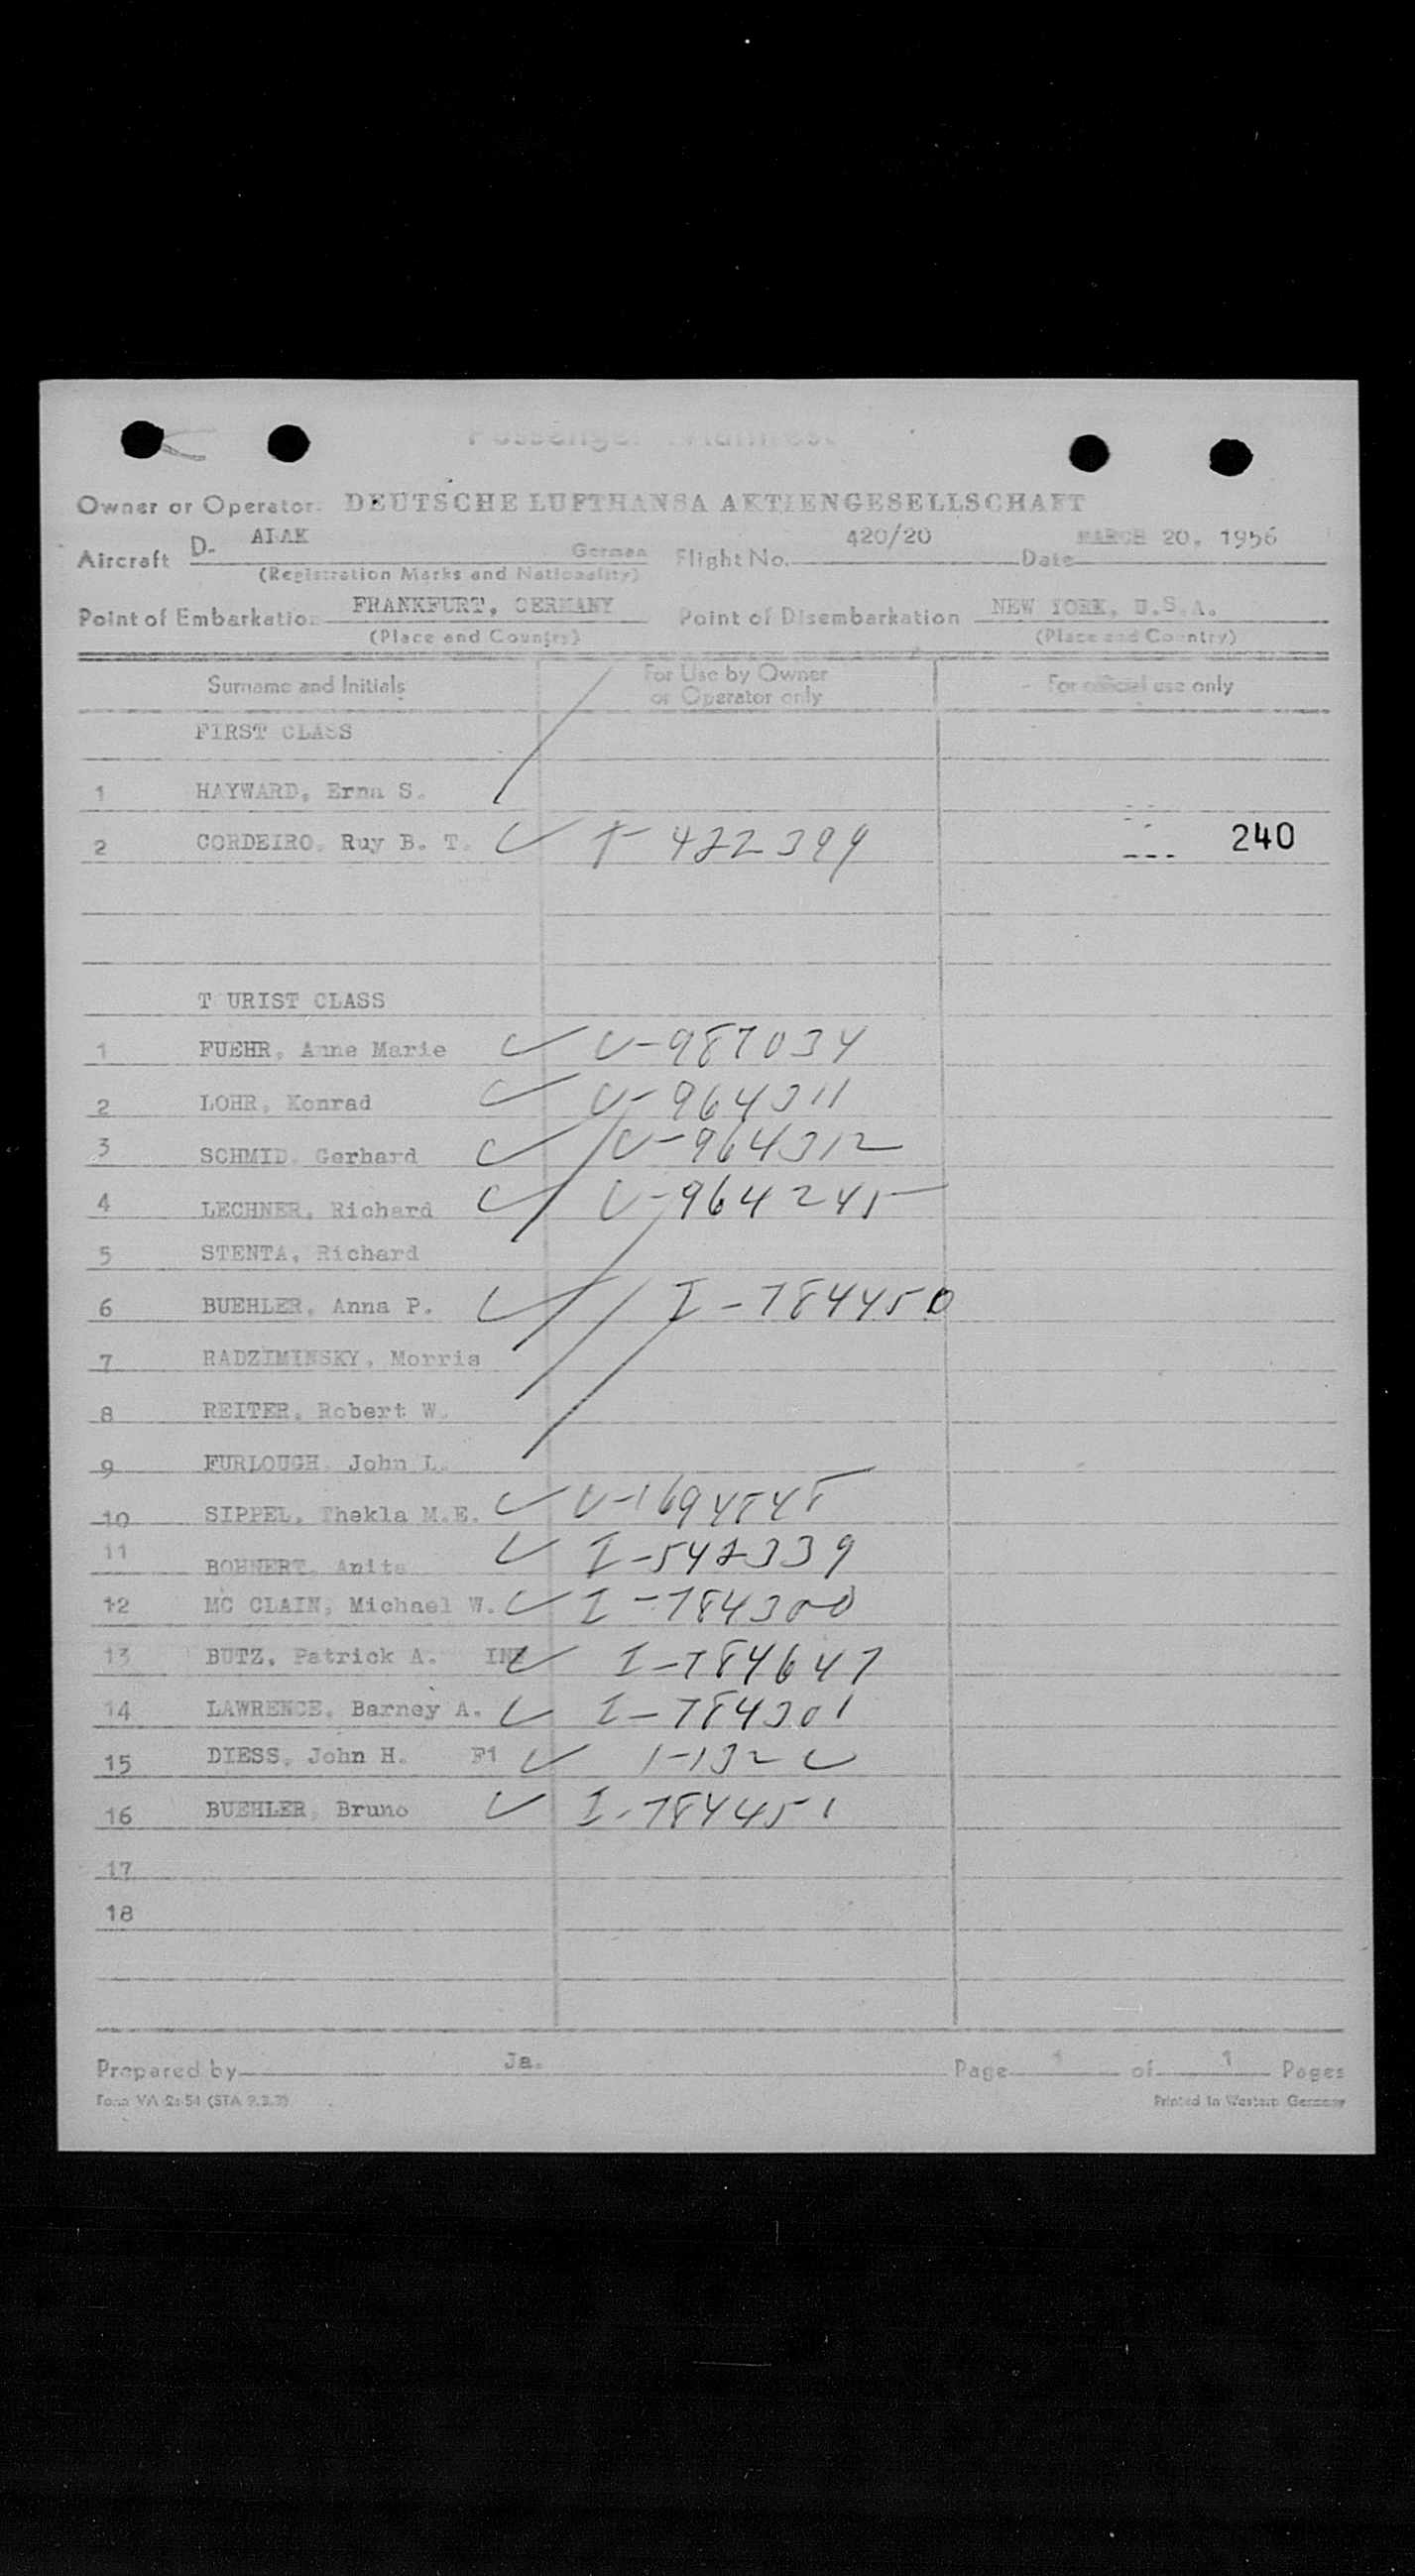 Passenger Manifest
Owner or Operator: DEUTSCHE LUFTHANSA AKTIENGESELLSCHAFT
Aircraft D- ALAK German Flight No. 420/20 Date MARCH 20, 1956
(Registration Marks and Nationality)
Point of Embarkation FRANKFURT, GERMANY Point of Disembarkation NEW YORK, U.S.A.
(Place and Country) (Place and Country)
Surname and Initials For Use by Owner or Operator only For official use only
FIRST CLASS
1 HAYWARD, Erna S.
2 CORDEIRO, Ruy B. T. 422399 240
T URIST CLASS
1 FUEHR, Anne Marie V-987034
2 LOHR, Konrad V-964311
3 SCHMID, Gerhard V-964312
4 LECHNER, Richard V-964245
5 STENTA, Richard
6 BUEHLER, Anna P. I-784450
7 RADZIMINSKY, Morris
8 REITER, Robert W.
9 FURLOUGH, John L.
10 SIPPEL, Thekla M.E.
11 BOHNERT, Anita I-542339
12 MC CLAIN, Michael W. I-784300
13 BUTZ, Patrick A. INF I-784647
14 LAWRENCE, Barney A. I-784301
15 DIESS, John H. F1
16 BUEHLER, Bruno I-784451
17
18
Prepared by Ja. Page 1 of 1 Pages
Printed in Western Germany